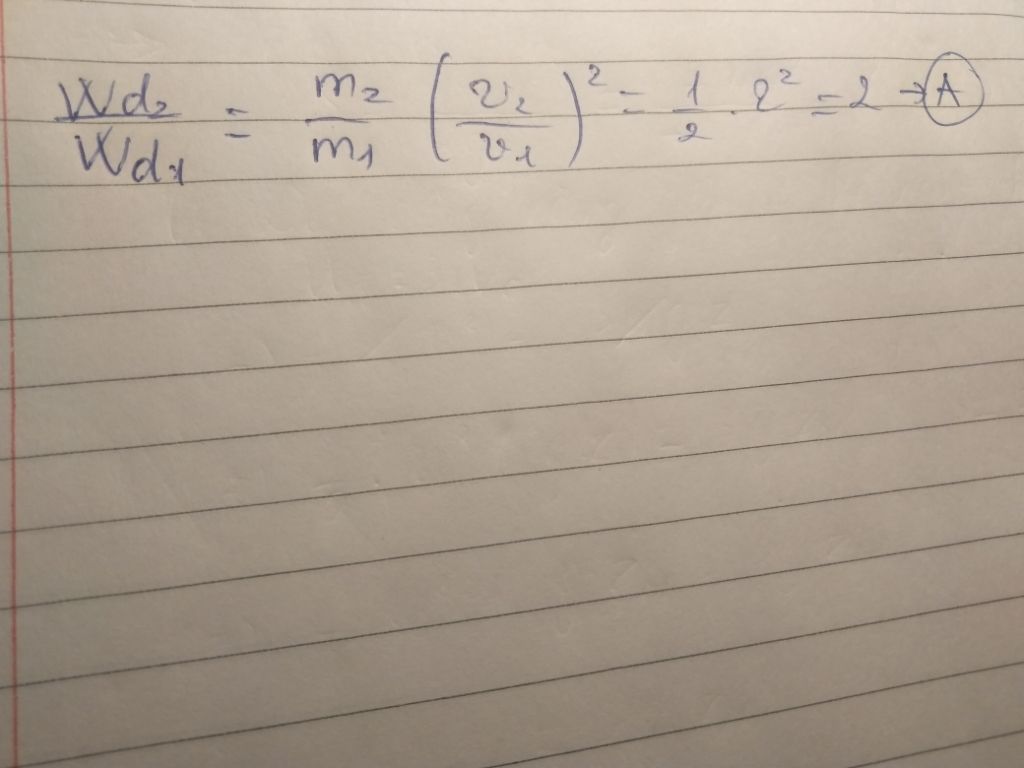 Wd₂/Wd₁ = m₂/m₁ (v₂/v₁)² = 1/2 . 2² = 2 → A